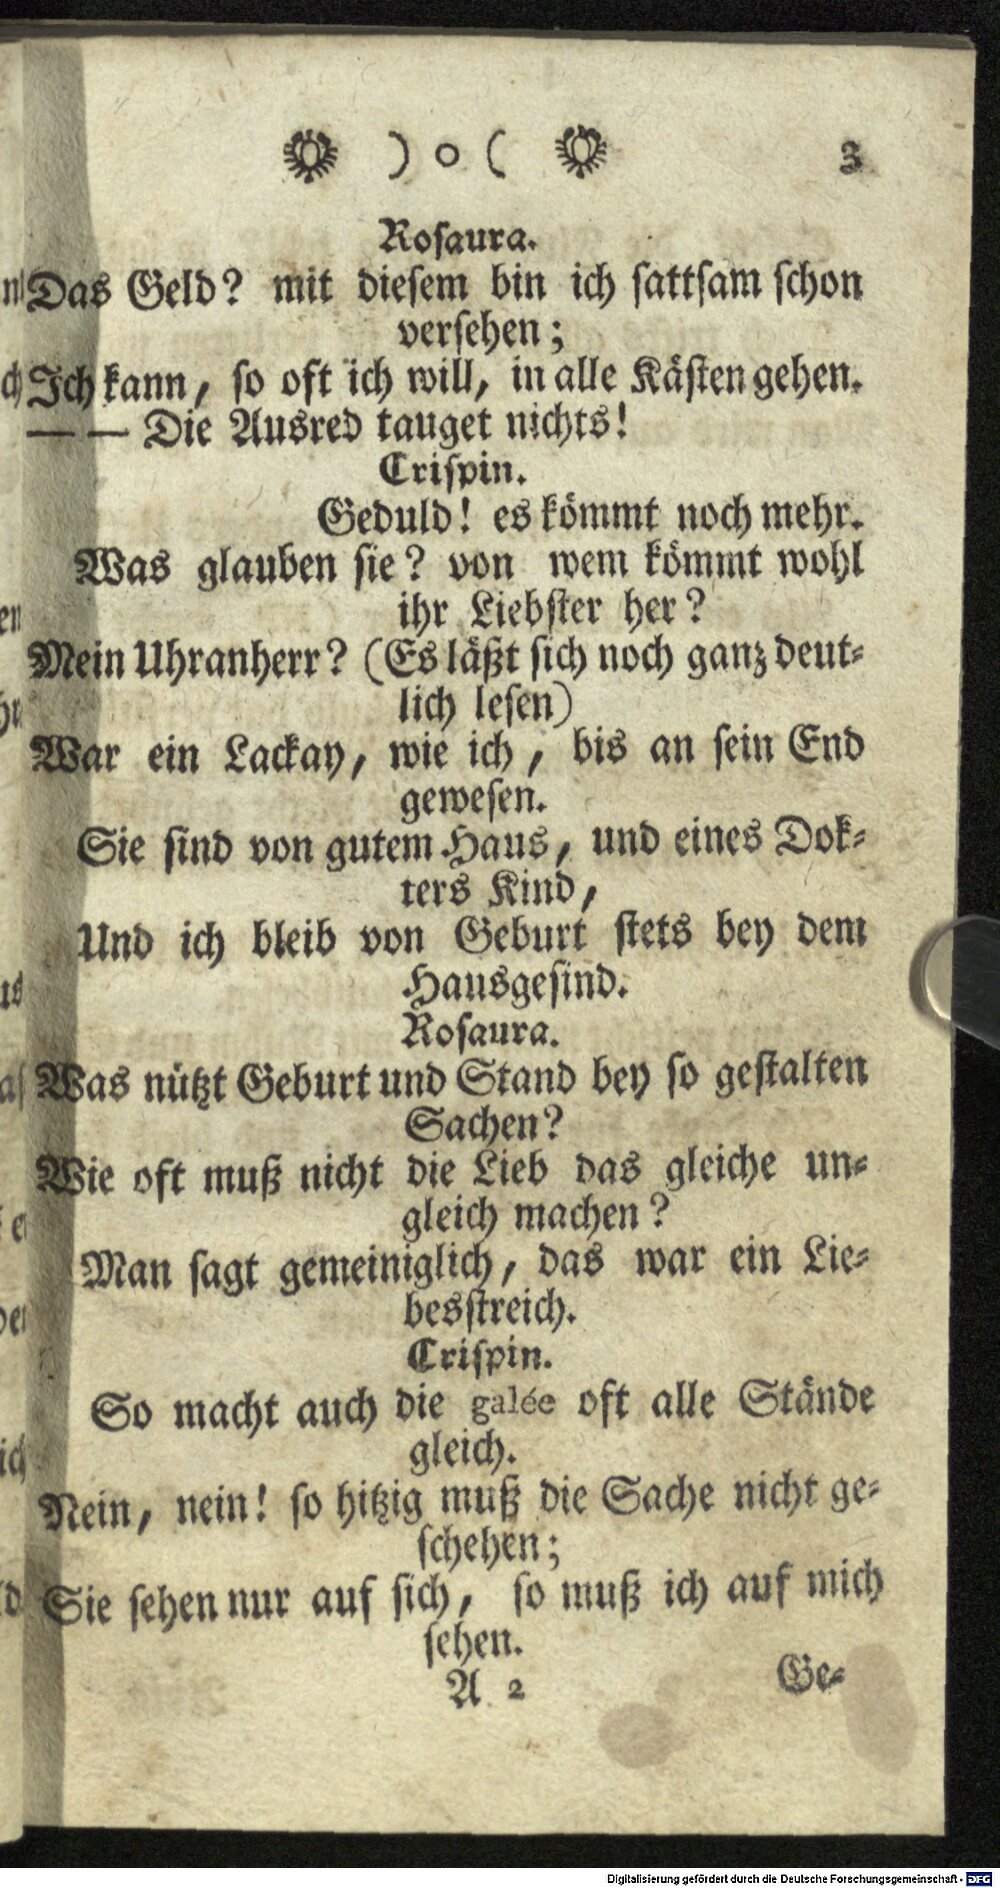 ) o ( 3
Rosaura.
Das Geld? mit diesem bin ich sattsam schon
versehen;
Ich kann, so oft ich will, in alle Kästen gehen.
— — Die Ausred tauget nichts!
Crispin.
Geduld! es kömmt noch mehr.
Was glauben sie? von wem kömmt wohl
ihr Liebster her?
Mein Uhranherr? (Es läßt sich noch ganz deut-
lich lesen)
War ein Lackay, wie ich, bis an sein End
gewesen.
Sie sind von gutem Haus, und eines Dok-
ters Kind,
Und ich bleib von Geburt stets bey dem
Hausgesind.
Rosaura.
Was nützt Geburt und Stand bey so gestalten
Sachen?
Wie oft muß nicht die Lieb das gleiche un-
gleich machen?
Man sagt gemeiniglich, das war ein Lie-
besstreich.
Crispin.
So macht auch die galée oft alle Stände
gleich.
Nein, nein! so hitzig muß die Sache nicht ge-
schehen;
Sie sehen nur auf sich, so muß ich auf mich
sehen.
A 2 Ge-
Digitalisierung gefördert durch die Deutsche Forschungsgemeinschaft - DFG